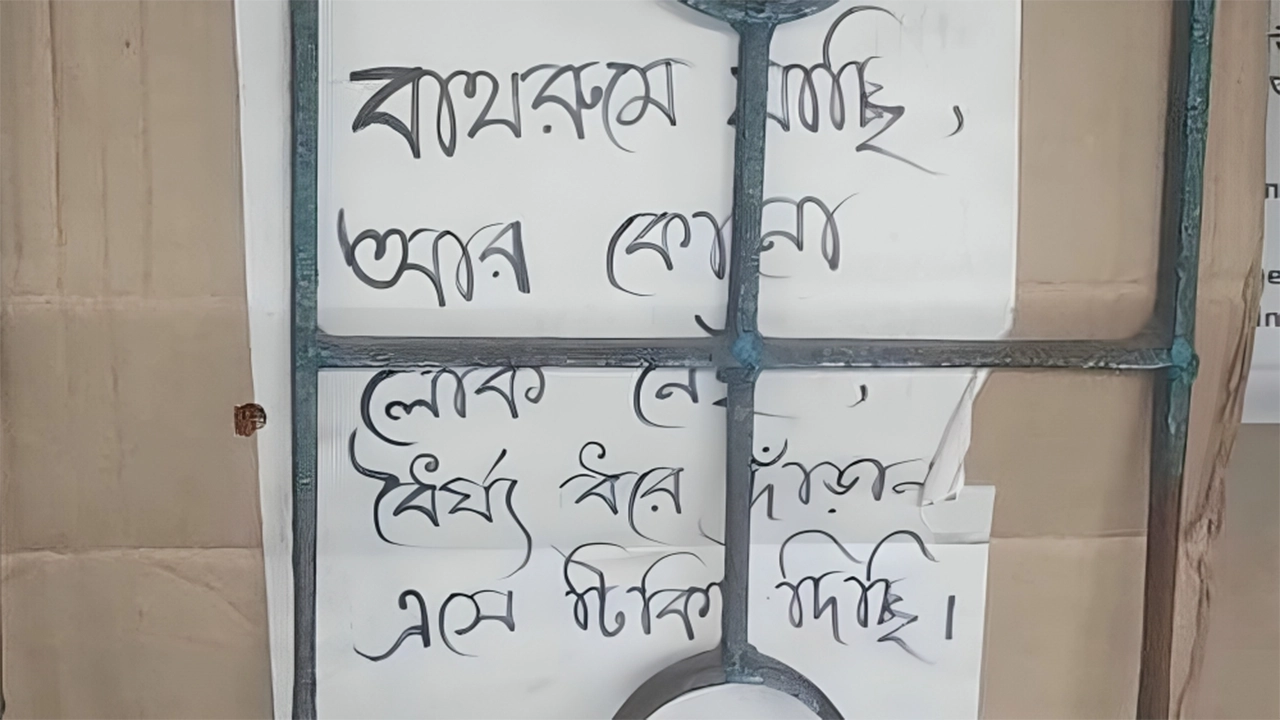 বাথরুমে যাচ্ছি,
আর কোনো
লোক নেই,
ধৈর্য্য ধরে দাঁড়ান
এসে টিকিট দিচ্ছি।